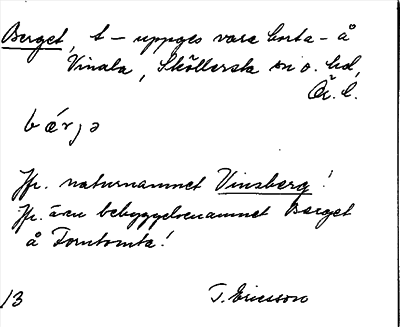 Berget, t – uppges vara borta – å
Vinala, Sköllersta sn o. hd,
Ör. l.
bærjə
Jfr. naturnamnet Vinsberg!
Jfr. även bebyggelsenamnet Berget
å Tomtomta!
13 T. Ericsson